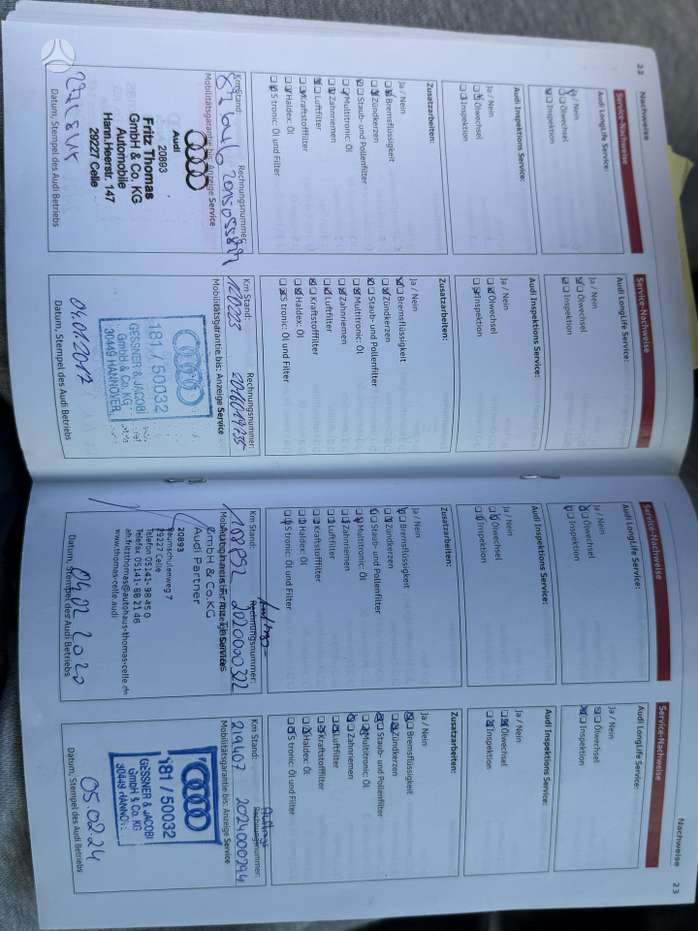 22
Nachweise
Service-Nachweise
Audi LongLife Service:
Ja / Nein
Ölwechsel
Inspektion
Audi Inspektions Service:
Ja / Nein
Ölwechsel
Inspektion
Zusatzarbeiten:
Ja / Nein
Bremsflüssigkeit
Zündkerzen
Staub- und Pollenfilter
Multitronic: Öl
Zahnriemen
Luftfilter
Kraftstofffilter
Haldex: Öl
S tronic: Öl und Filter
Km Stand: Rechnungsnummer:
Mobilitätsgarantie bis: Anzeige Service
Audi
20893
Fritz Thomas
GmbH & Co. KG
Automobile
Hann.Heerstr. 147
29227 Celle
Datum, Stempel des Audi Betriebs
Service-Nachweise
Audi LongLife Service:
Ja / Nein
Ölwechsel
Inspektion
Audi Inspektions Service:
Ja / Nein
Ölwechsel
Inspektion
Zusatzarbeiten:
Ja / Nein
Bremsflüssigkeit
Zündkerzen
Staub- und Pollenfilter
Multitronic: Öl
Zahnriemen
Luftfilter
Kraftstofffilter
Haldex: Öl
S tronic: Öl und Filter
Km Stand: Rechnungsnummer:
120223
Mobilitätsgarantie bis: Anzeige Service
181 / 50032
GESSNER & JACOBI
GmbH & Co. KG
30449 HANNOVER
04.01.2017
Datum, Stempel des Audi Betriebs
Service-Nachweise
Audi LongLife Service:
Ja / Nein
Ölwechsel
Inspektion
Audi Inspektions Service:
Ja / Nein
Ölwechsel
Inspektion
Zusatzarbeiten:
Ja / Nein
Bremsflüssigkeit
Zündkerzen
Staub- und Pollenfilter
Multitronic: Öl
Zahnriemen
Luftfilter
Kraftstofffilter
Haldex: Öl
S tronic: Öl und Filter
Km Stand: Rechnungsnummer:
2020000322
GmbH & Co.KG
Audi Partner
20893
29227 Celle
Telefon 05141- 98 45 0
Telefax 05141- 88 21 46
ah.fritzthomas@autohaus-thomas-celle.de
www.thomas-celle.audi
04.02.2020
Datum, Stempel des Audi Betriebs
Nachweise
23
Service-Nachweise
Audi LongLife Service:
Ja / Nein
Ölwechsel
Inspektion
Audi Inspektions Service:
Ja / Nein
Ölwechsel
Inspektion
Zusatzarbeiten:
Ja / Nein
Bremsflüssigkeit
Zündkerzen
Staub- und Pollenfilter
Multitronic: Öl
Zahnriemen
Luftfilter
Kraftstofffilter
Haldex: Öl
S tronic: Öl und Filter
Auftrags
Km Stand: Rechnungsnummer:
219407 2024000294
Mobilitätsgarantie bis: Anzeige Service
181 / 50032
GESSNER & JACOBI
GmbH & Co. KG
30449 HANNO
05.02.24
Datum, Stempel des Audi Betriebs